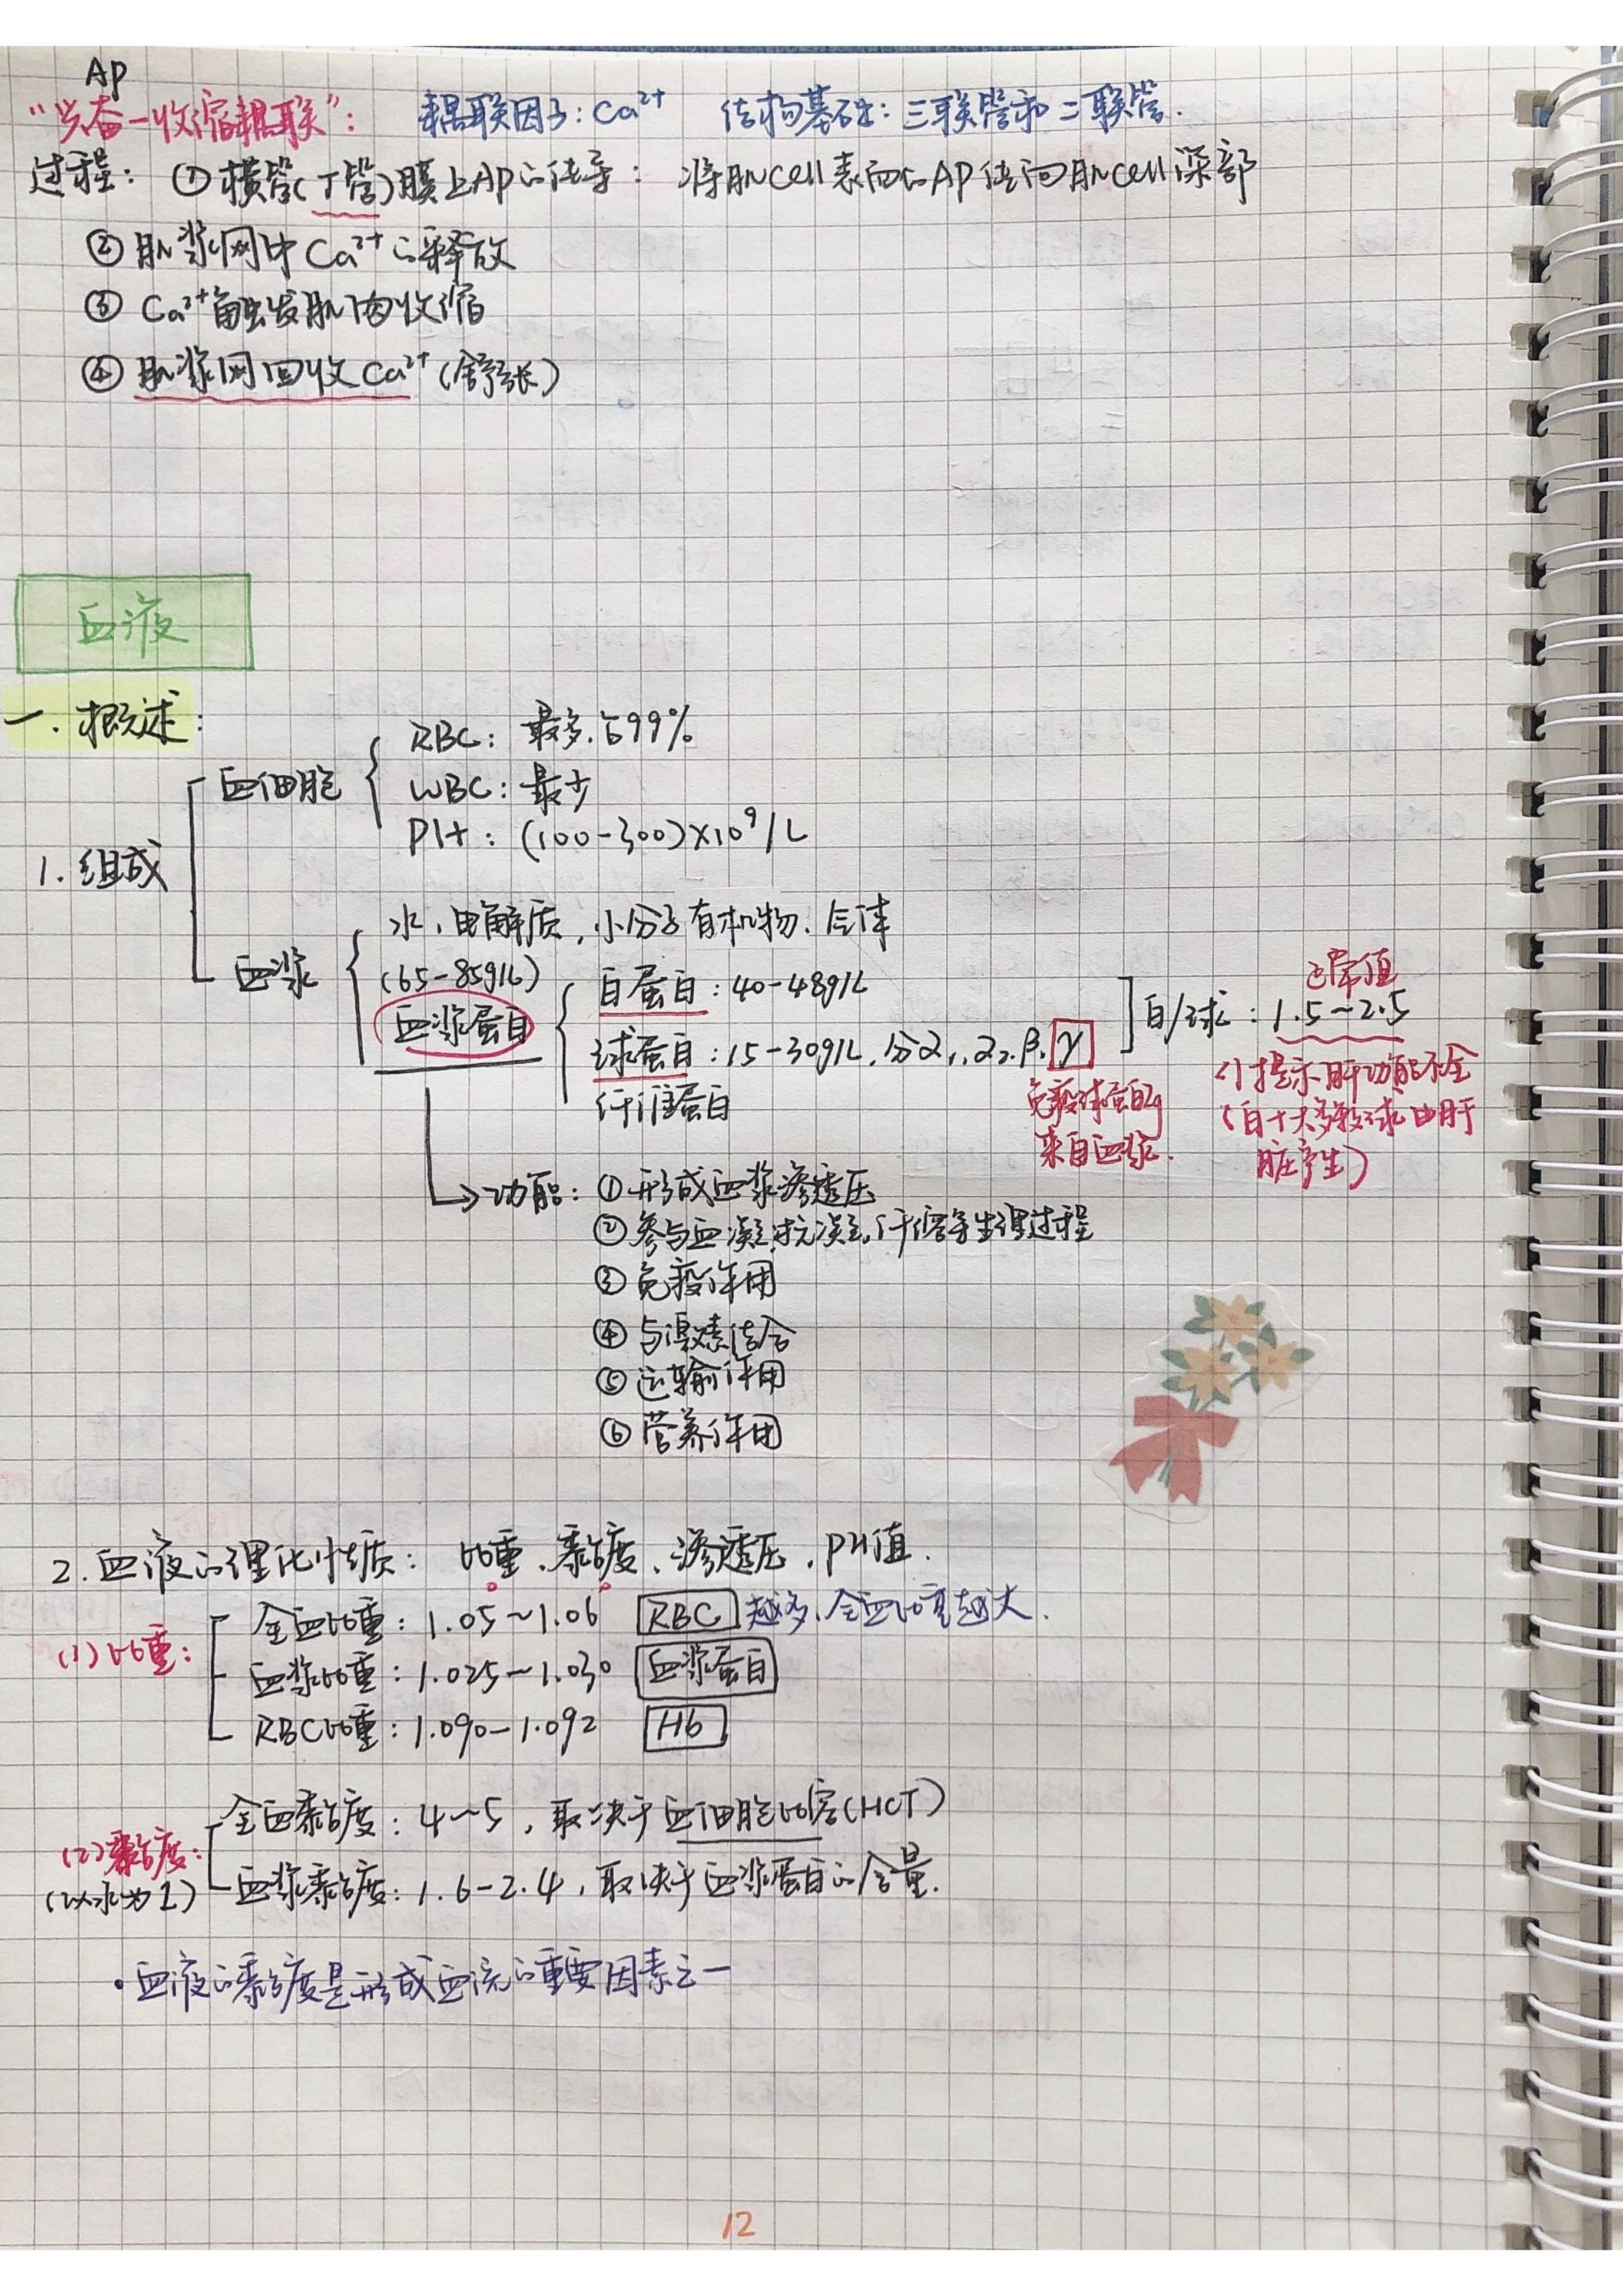 Ap
"兴奋-收缩耦联"： 耦联因子：Ca²⁺ 结构基础：三联管和二联管.
过程：①横管(T管)膜上Ap的传导：将肌cell表面的AP传向肌cell深部
②肌浆网中Ca²⁺的释放
③Ca²⁺触发肌肉收缩
④肌浆网回收Ca²⁺(舒张)
血液
一.概述：
1.组成
血细胞
RBC：最多,占99%
WBC：最少
Plt：(100-300)×10⁹/L
血浆
水、电解质,小分子有机物、气体
(65-85g/L)
血浆蛋白
白蛋白：40-48g/L
球蛋白：15-30g/L,分α₁,α₂,β,γ
纤维蛋白
免疫球蛋白Ig
来自血浆.
白/球：1.5~2.5
正常值
<1提示肝功能不全
(白+大多数球由肝
脏产生)
功能：①形成血浆渗透压
②参与血凝,抗凝,纤溶等生理过程
③免疫作用
④与激素结合
⑤运输作用
⑥营养作用
2.血液的理化性质：比重、黏度、渗透压,PH值.
(1)比重：
全血比重：1.05~1.06 RBC越多,全血比重越大.
血浆比重：1.025~1.030 血浆蛋白
RBC比重：1.090-1.092 Hb
(2)黏度：
(以水为1)
全血黏度：4~5,取决于血细胞比容(HCT)
血浆黏度：1.6-2.4,取决于血浆蛋白的含量.
·血液的黏度是形成血流的重要因素之一
12